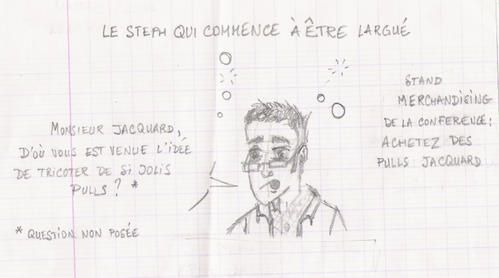 LE STEPH QUI COMMENCE À ÊTRE LARGUÉ
MONSIEUR JACQUARD,
D'OÙ VOUS EST VENUE L'IDÉE
DE TRICOTER DE SI JOLIS
PULLS ? *
* QUESTION NON POSÉE
STAND
MERCHANDISING
DE LA CONFERENCE:
ACHETEZ DES
PULLS JACQUARD